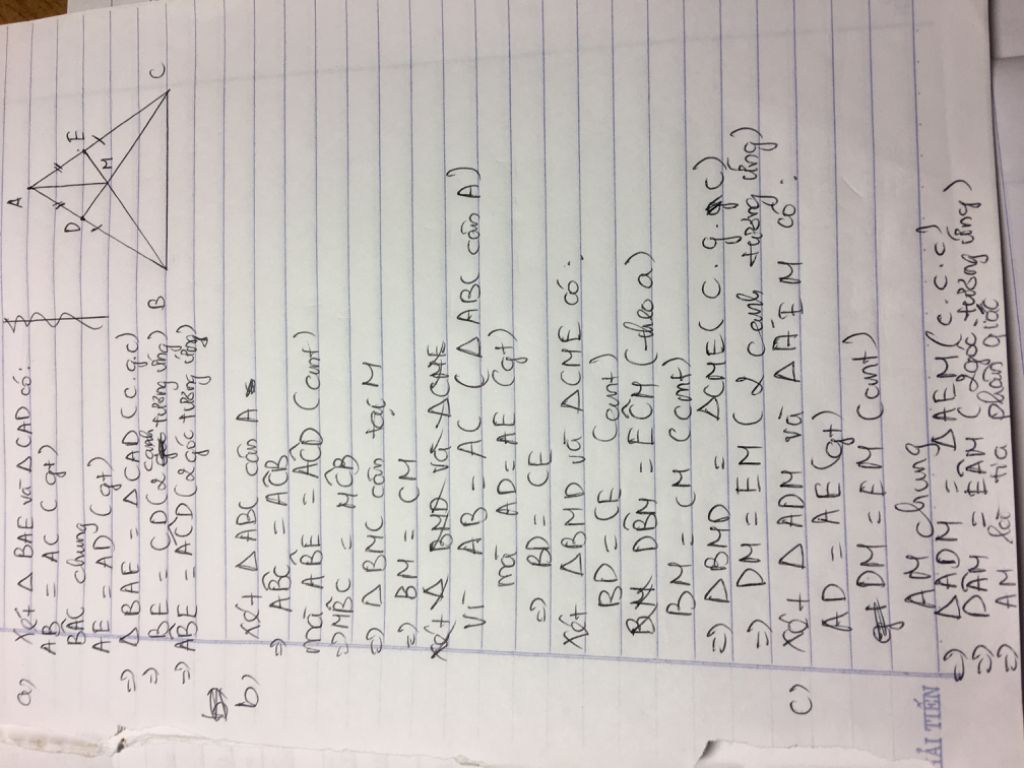 a) Xét △ BAE và △ CAD có:
AB = AC (gt)
BÂC chung
AE = AD (gt)
=) △ BAE = △ CAD (c.g.c)
=) BE = CD (2 cạnh tương ứng)
=) AB̂E = AĈD (2 góc tương ứng)
b) Xét △ ABC cân A
=) AB̂C = AĈB
mà AB̂E = AĈD (cmt)
=) MB̂C = MĈB
=) △ BMC cân tại M
=) BM = CM
Xét △ BMD và △CME
Vì AB = AC (△ ABC cân A)
mà AD = AE (gt)
=) BD = CE
Xét △BMD và △CME có:
BD = CE (cmt)
DB̂M = EĈM (theo a)
BM = CM (cmt)
=) △BMD = △CME (c.g.c)
=) DM = EM (2 cạnh tương ứng)
c) Xét △ ADM và △ AEM có:
AD = AE (gt)
DM = EM (cmt)
AM chung
=) △ADM = △AEM (c.c.c)
=) DÂM = EÂM (2góc tương ứng)
=) AM là tia phân giác
A
D
E
M
B
C
ẢI TIẾN